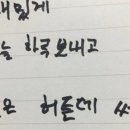 재밌게
늘 하루 보내고
은 허튼데